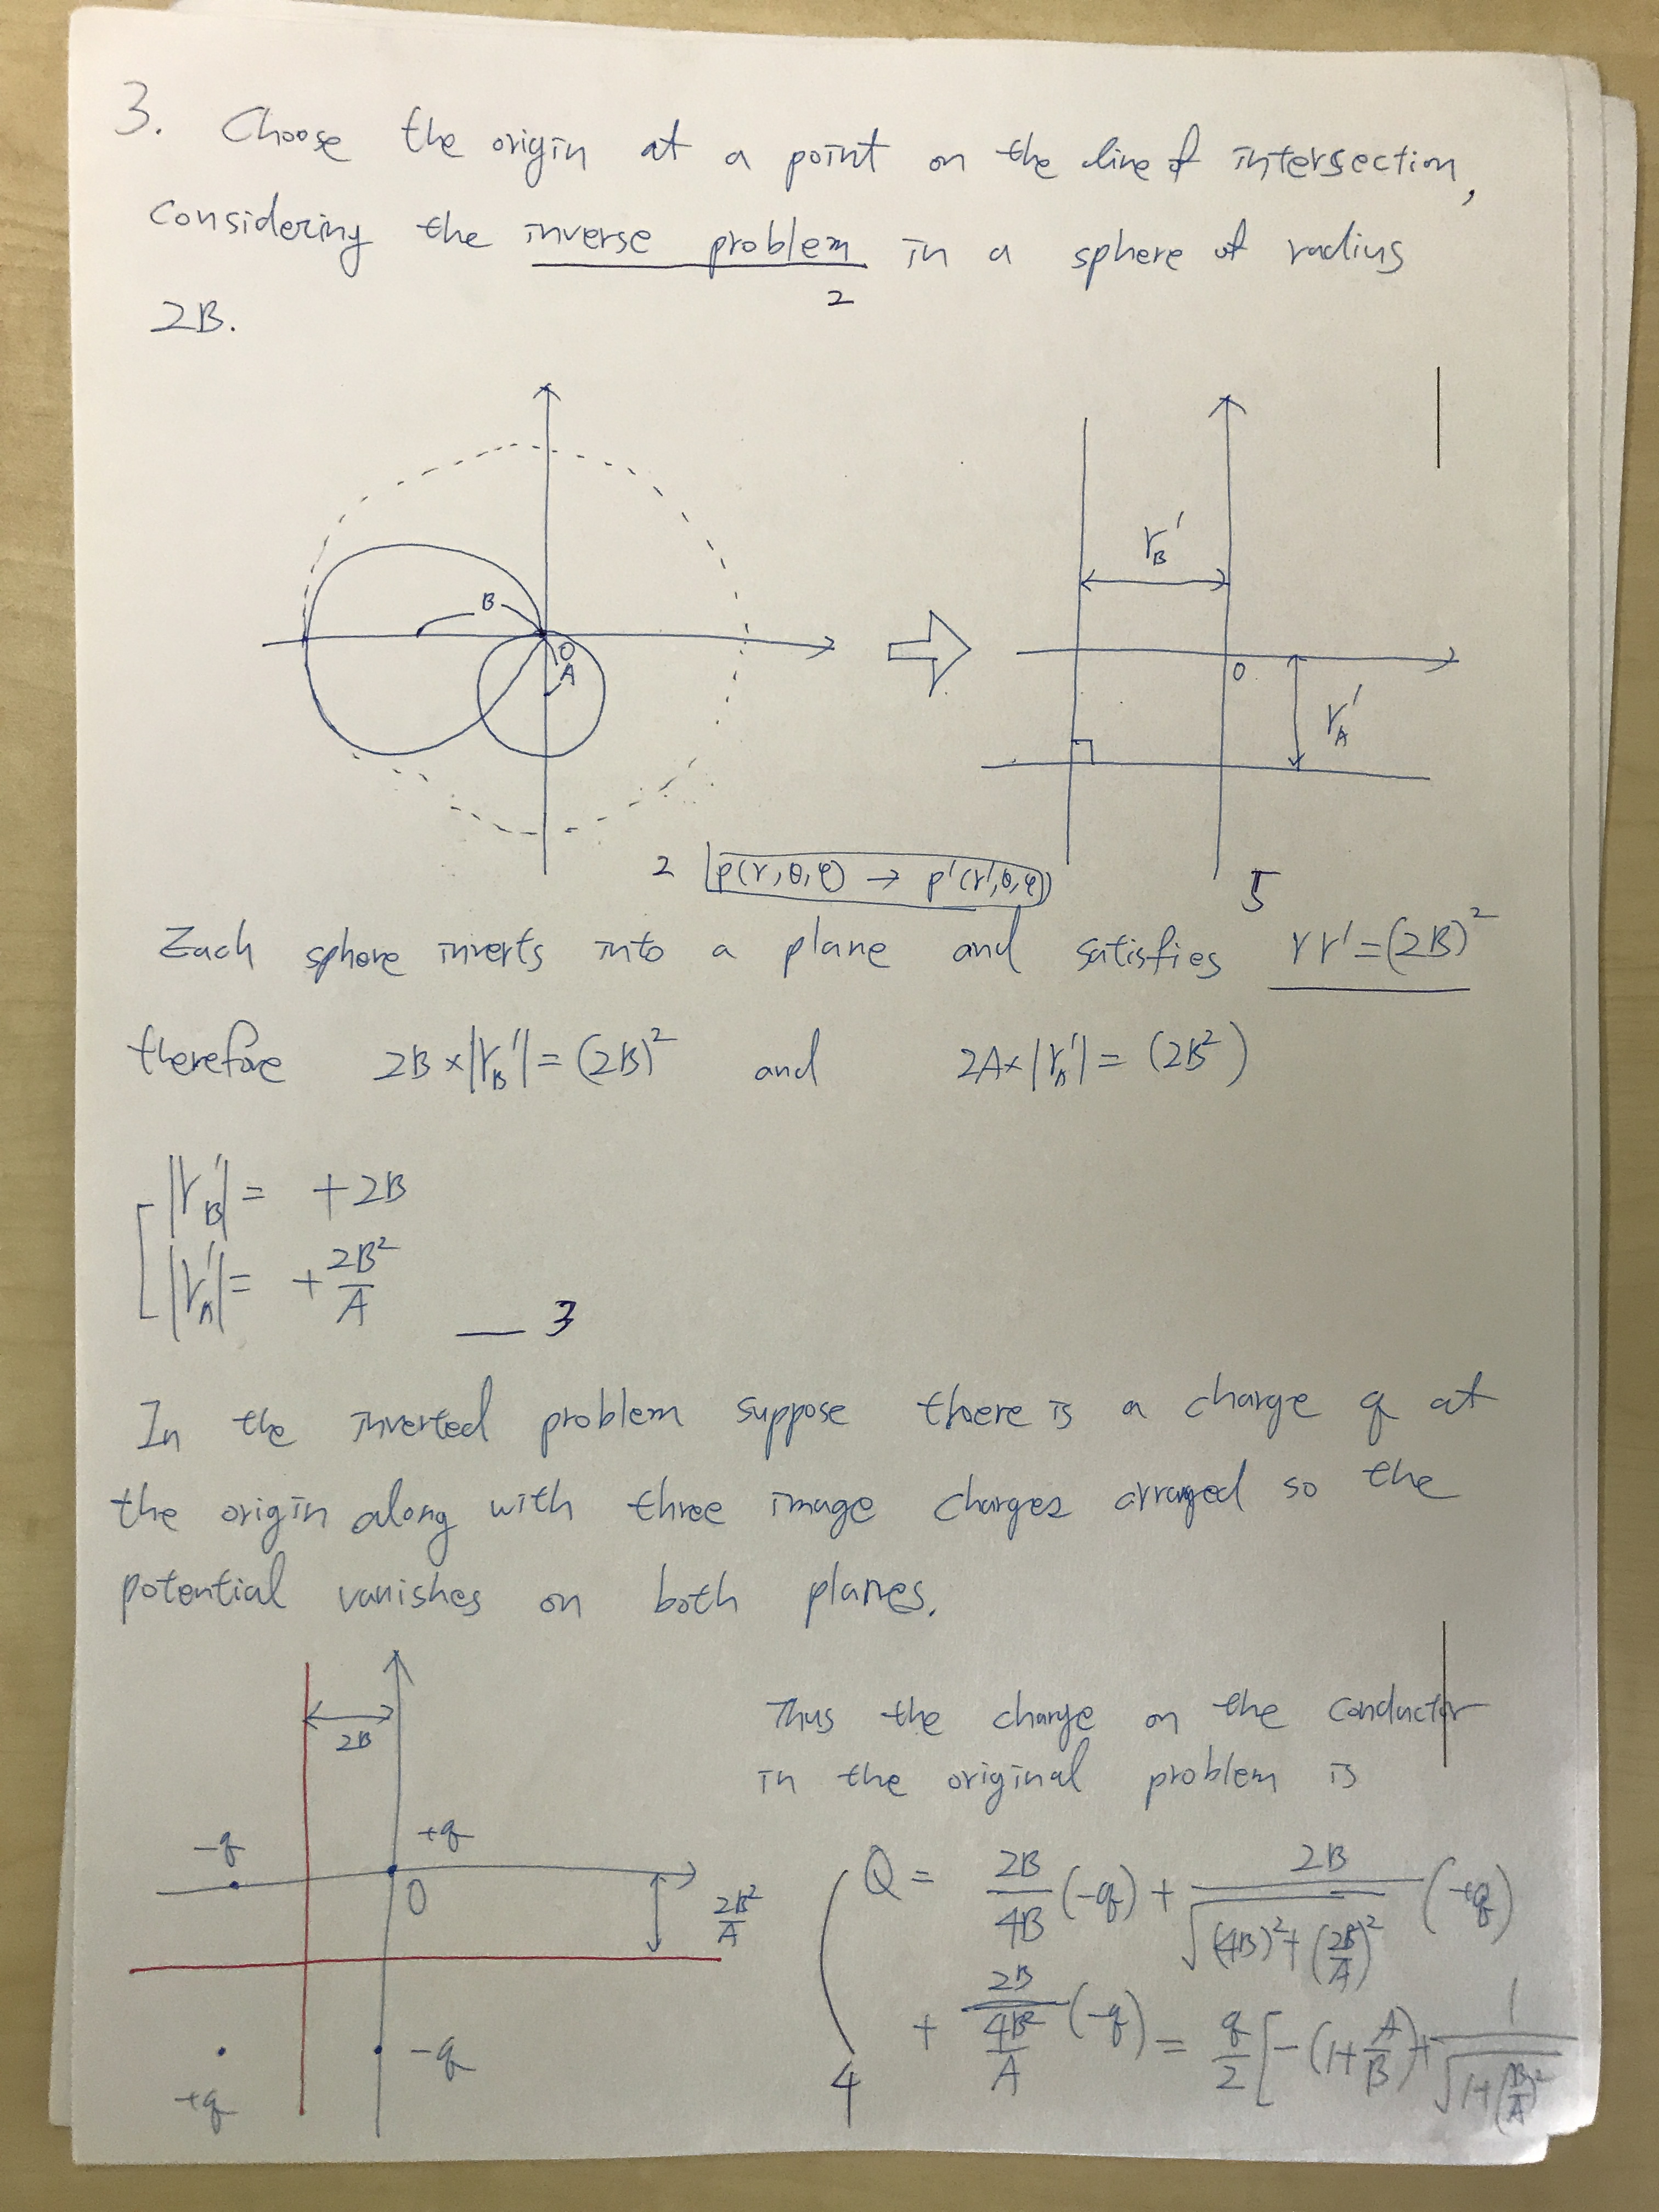 3. Choose the origin at a point on the line of intersection,
considering the inverse problem in a sphere of radius
2
2B.
B
O
A
r_B'
O
r_A'
2 p(r,θ,φ) → p'(r',θ,φ)
5
Each sphere inverts into a plane and satisfies rr'=(2B)²
therefore 2B×|r_B'|=(2B)² and 2A×|r_A'|=(2B²)
|r_B'|= +2B
|r_A'|= +2B²/A
— 3
In the inverted problem suppose there is a charge q at
the origin along with three image charges arranged so the
potential vanishes on both planes.
2B
-q +q
O
2B²/A
+q -q
Thus the charge on the conductor
in the original problem is
Q = 2B/4B (-q) + 2B/√((4B)²+(2B/A)²) (+q)
+ 2B/(4B²/A) (-q) = q/2 [-(1+A/B)+1/√(1+(B/A)²)
4